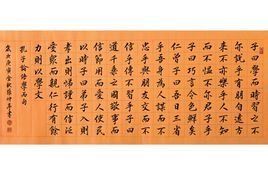 子曰學而時習之不
亦說乎有朋自遠方
來不亦樂乎人不知
而不慍不亦君子乎
子曰巧言令色鮮矣
仁曾子曰吾日三省
吾身為人謀而不
忠乎與朋友交而不
信乎傳不習乎子曰
道千乘之國敬事而
信節用而愛人使民
以時子曰弟子入則
孝出則悌謹而信汎
愛眾而親仁行有餘
力則以學文
孔子論語學而句